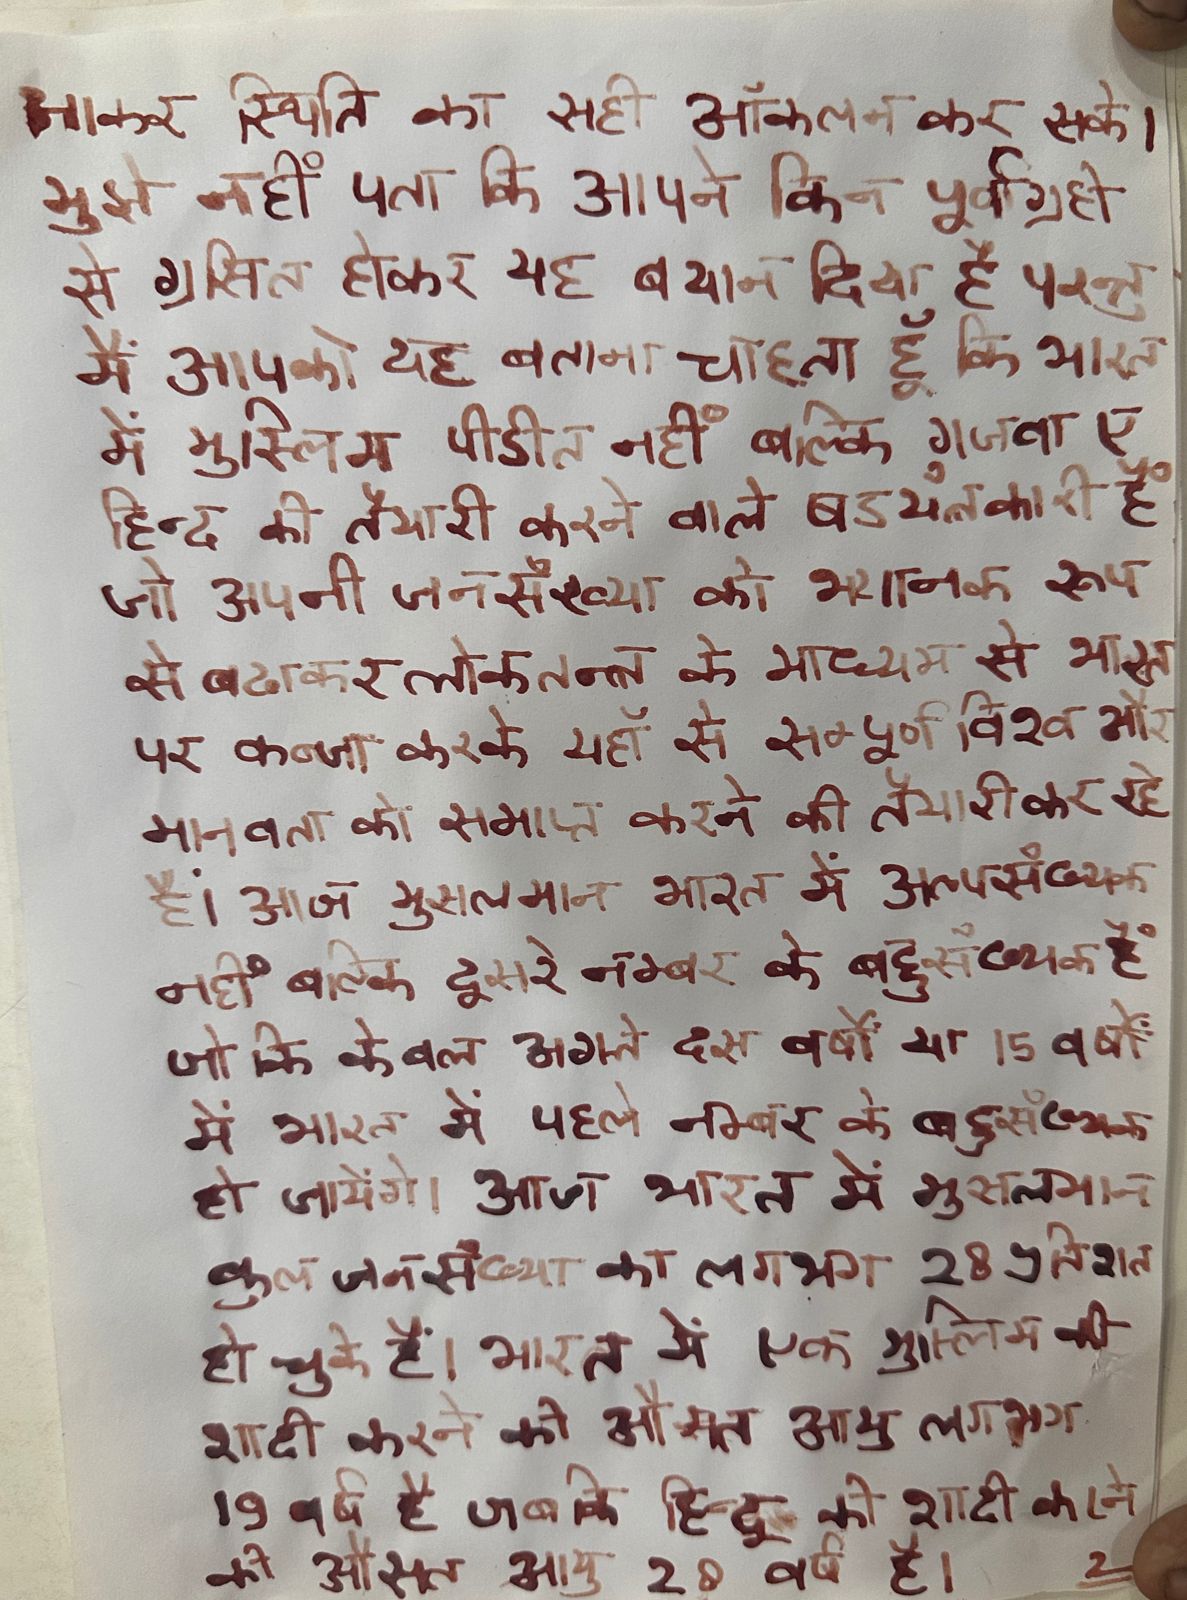 जाकर स्थिति का सही आँकलन कर सके।
मुझे नहीं पता कि आपने किन पूर्वाग्रहो
से ग्रसित होकर यह बयान दिया है परन्तु
मैं आपको यह बताना चाहता हूँ कि भारत
में मुस्लिम पीडीत नहीं बल्कि गजवा ए
हिन्द की तैयारी करने वाले षडयंत्रकारी हैं
जो अपनी जनसँख्या को भयानक रूप
से बढाकर लोकतन्त्र के माध्यम से भारत
पर कब्जा करके यहाँ से सम्पूर्ण विश्व और
मानवता को समाप्त करने की तैयारी कर रहे
हैं। आज मुसलमान भारत में अल्पसँख्यक
नहीं बल्कि दूसरे नम्बर के बहुसँख्यक हैं
जो कि केवल अगले दस वर्षों या 15 वर्षों
में भारत में पहले नम्बर के बहुसँख्यक
हो जायेंगे। आज भारत में मुसलमान
कुल जनसँख्या का लगभग 28 प्रतिशत
हो चुके हैं। भारत में एक मुस्लिम की
शादी करने की औसत आयु लगभग
19 वर्ष है जबकि हिन्दू की शादी करने
की औसत आयु 28 वर्ष है।
2